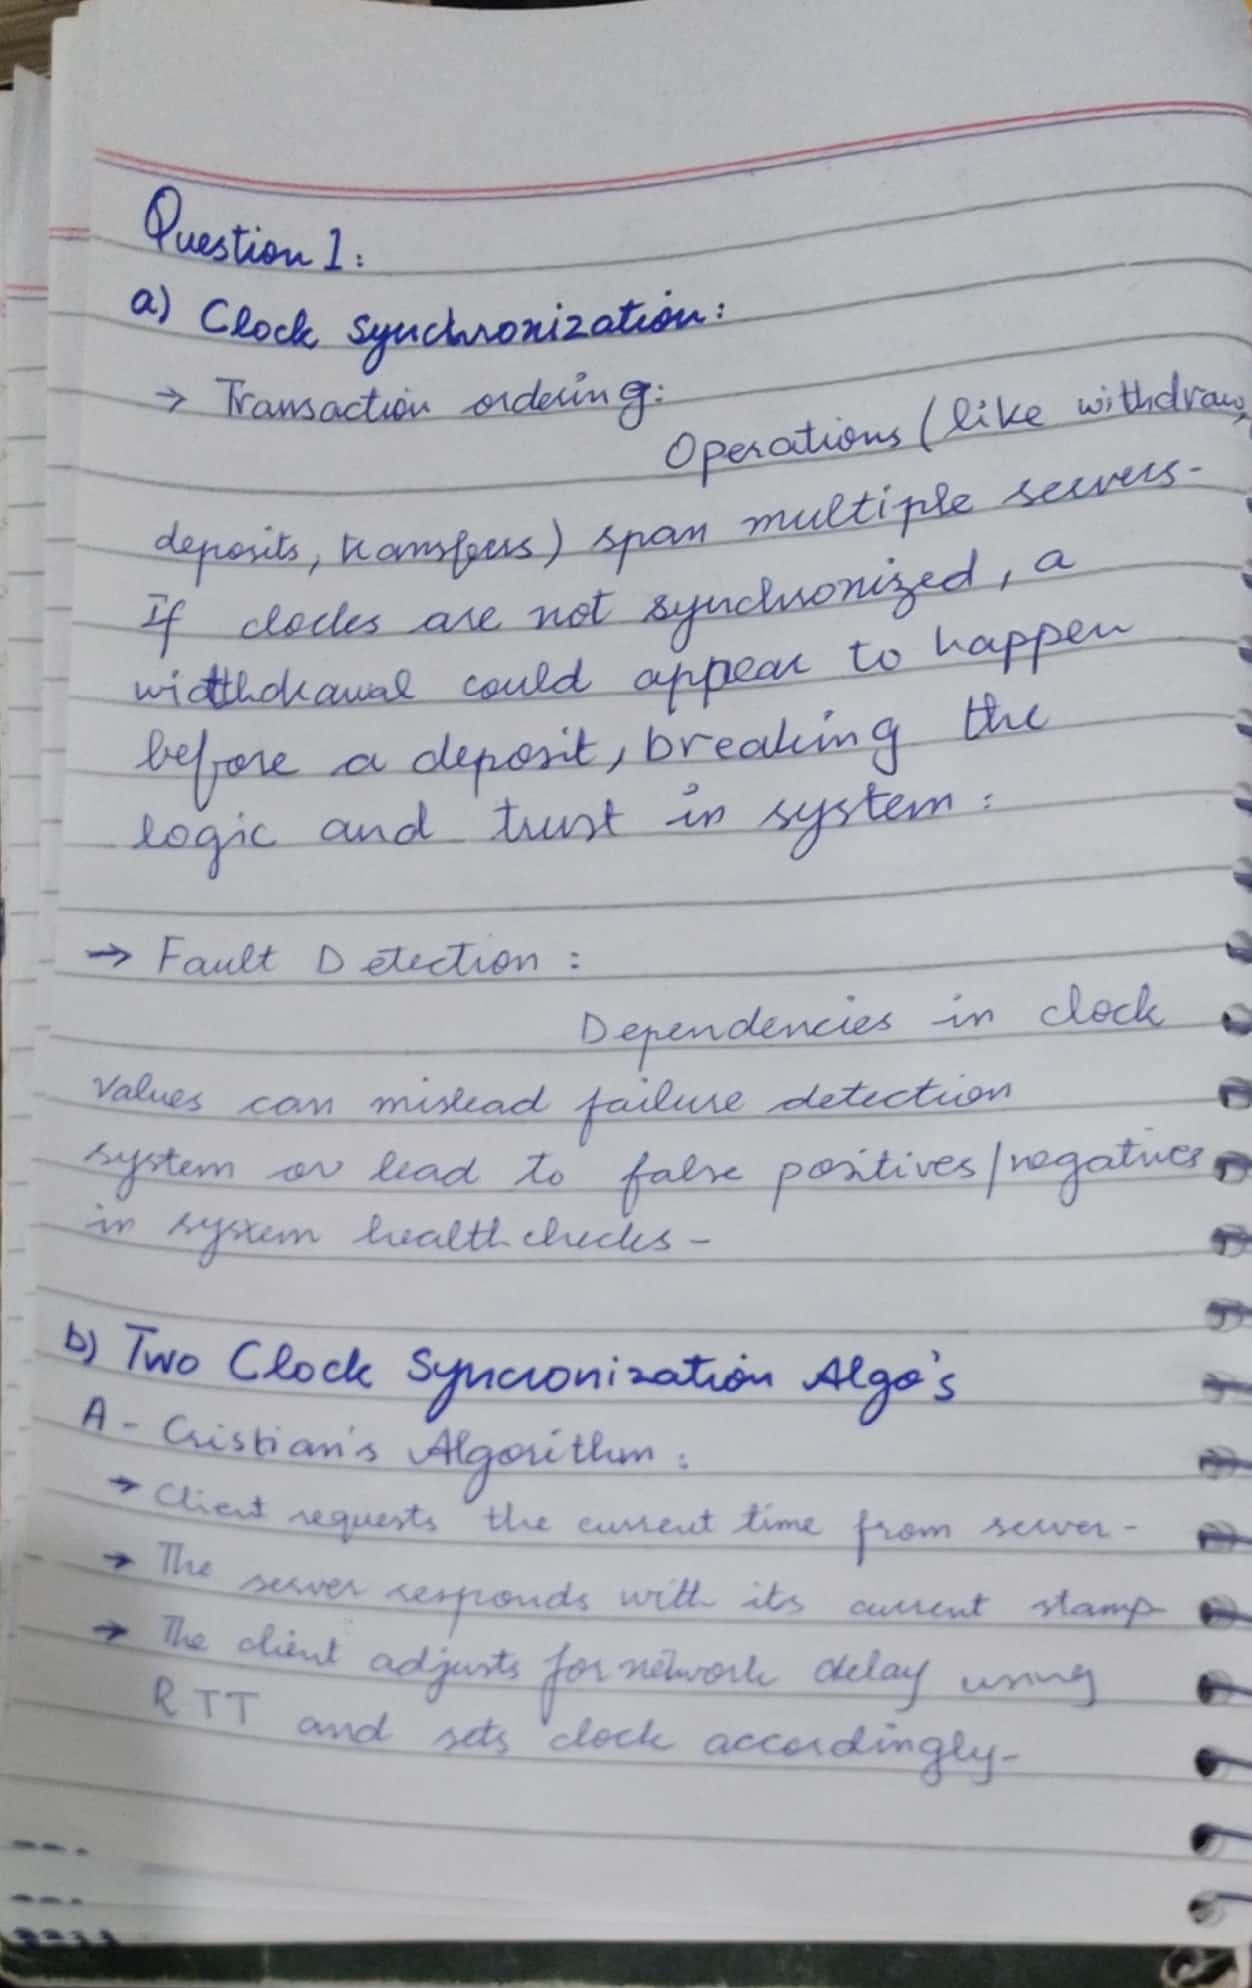 Question 1:
a) Clock Synchronization:
→ Transaction ordering:
Operations (like withdraw,
deposits, transfers) span multiple servers-
If clocks are not synchronized, a
widthdrawal could appear to happen
before a deposit, breaking the
logic and trust in system:
→ Fault Detection:
Dependencies in clock
values can mislead failure detection
system or lead to false positives/negatives
in system health checks-
b) Two Clock Syncronization Algo's
A - Cristian's Algorithm:
→ Client requests the current time from server-
→ The server responds with its current stamp
→ The client adjusts for network delay using
RTT and sets clock accordingly-